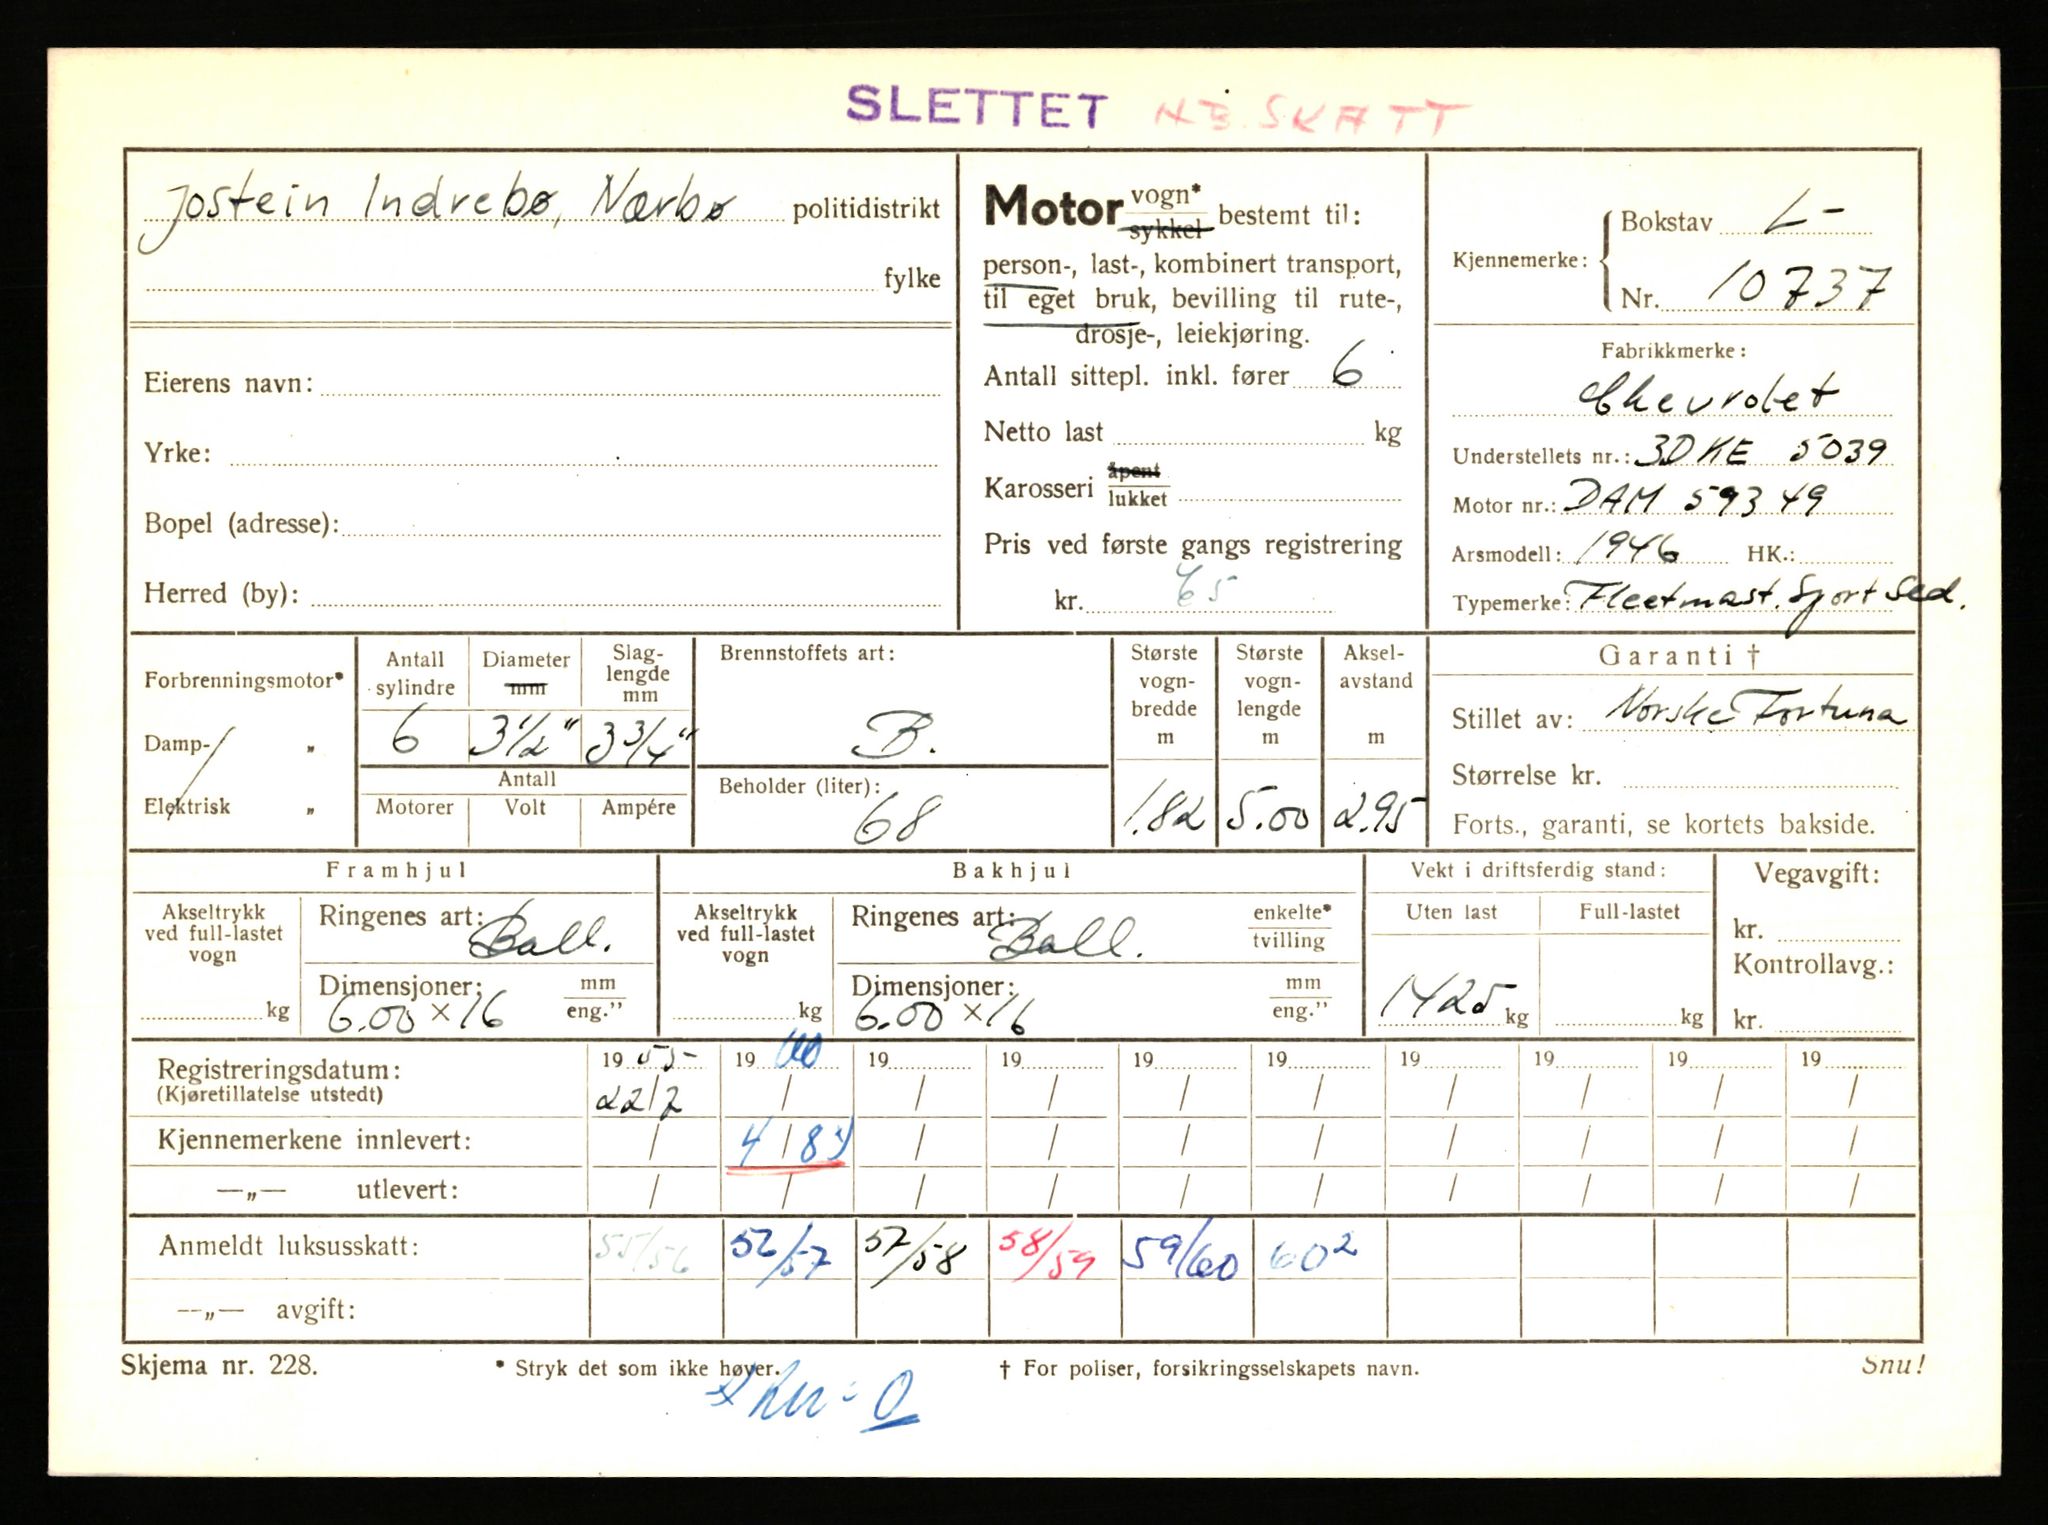 SLETTET NB. SKATT
Jostein Indrebø, Nærbø politidistrikt
fylke
Eierens navn:
Yrke:
Bopel (adresse):
Herred (by):
Motor vogn* sykkel bestemt til:
person-, last-, kombinert transport,
til eget bruk, bevilling til rute-,
drosje-, leiekjøring.
Antall sittepl. inkl. fører 6
Netto last kg
Karosseri åpent lukket
Pris ved første gangs registrering
kr. 65
Kjennemerke: Bokstav L-
Nr. 10737
Fabrikkmerke:
Chevrolet
Understellets nr.: 3DKE 5039
Motor nr.: DAM 59349
Arsmodell: 1946 HK.:
Typemerke: Fleetmast. Sport Sed.
Forbrenningsmotor*
Damp- „
Elektrisk „
Antall sylindre
6
Diameter mm
3 1/2"
Slag-lengde mm
3 3/4"
Antall
Motorer Volt Ampére
Brennstoffets art:
B.
Beholder (liter):
68
Største vogn-bredde m
1.82
Største vogn-lengde m
5.00
Aksel-avstand m
2.95
Garanti †
Stillet av: Norske Fortuna
Størrelse kr.
Forts., garanti, se kortets bakside.
Framhjul
Akseltrykk ved full-lastet vogn
kg
Ringenes art: Ball.
Dimensjoner: mm eng.”
6.00 × 16
Bakhjul
Akseltrykk ved full-lastet vogn
kg
Ringenes art: Ball. enkelte* tvilling
Dimensjoner: mm eng.”
6.00 × 16
Vekt i driftsferdig stand:
Uten last Full-lastet
1425 kg kg
Vegavgift:
kr.
Kontrollavg.:
kr.
Registreringsdatum: 19 55- 19 60 19 19 19 19 19 19 19 19
(Kjøretillatelse utstedt) 22/2 / / / / / / / / /
Kjennemerkene innlevert: / 4/8 / / / / / / / /
—„— utlevert: / / / / / / / / / /
Anmeldt luksusskatt: 55/56 52/57 57/58 58/59 59/60 60²
—„— avgift:
Skjema nr. 228. * Stryk det som ikke høver. † For poliser, forsikringsselskapets navn. Snu!